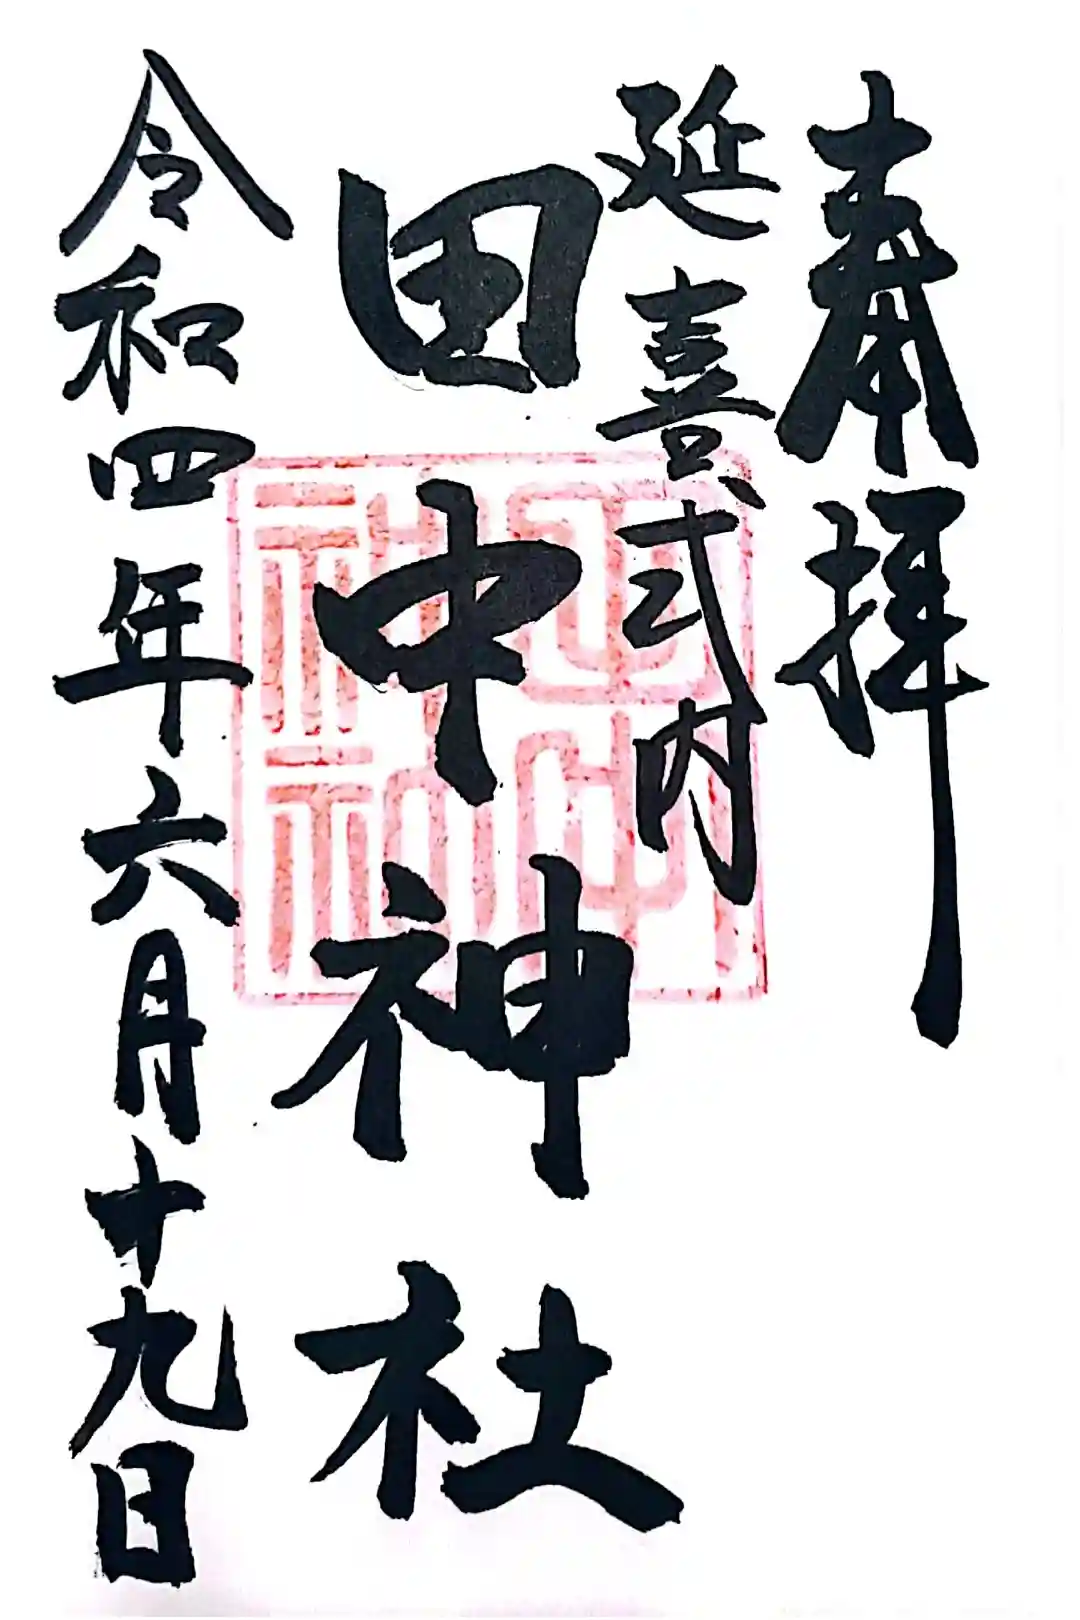 奉拝
延喜式内
田中神社
田中神社
令和四年六月十九日